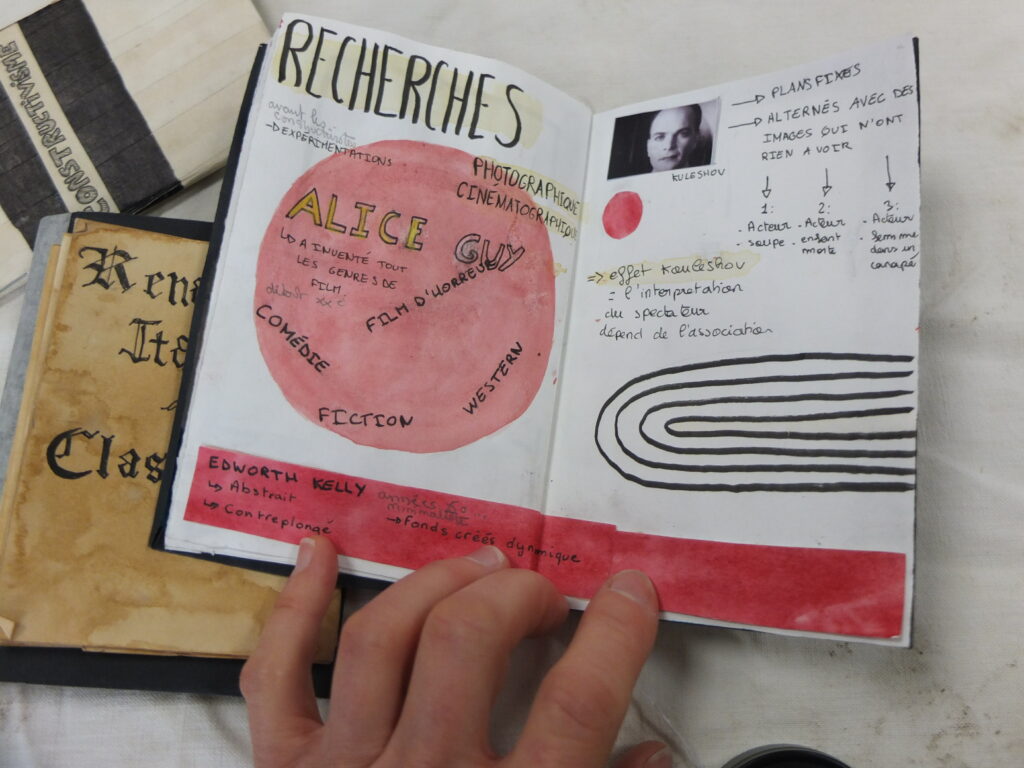 CONSTRUCTIVISME
Rena
Ita
Clas
RECHERCHES
avant les
constructivistes
→ EXPÉRIMENTATIONS
PHOTOGRAPHIQUE
CINÉMATOGRAPHIQUE
ALICE GUY
↳ A INVENTÉ TOUT
LES GENRES DE
FILM
début XXe
FILM D'HORREUR
COMÉDIE
WESTERN
FICTION
EDWORTH KELLY
↳ Abstrait
↳ Contreplongé
années 60
minimaliste
→ fonds créés dynamique
KULESHOV
→ PLANS FIXES
→ ALTERNÉS AVEC DES
IMAGES QUI N'ONT
RIEN A VOIR
1:
- Acteur
- soupe
2:
- Acteur
- enfant
morte
3:
- Acteur
- femme
dans un
canapé
=> effet Kouleshov
= l'interpretation
du spectateur
dépend de l'association